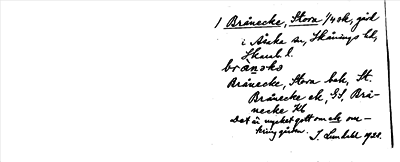 1 Brånecke, Stora 1/4 sk, gård
i Åsaka sn, Skånings hd,
Skarab. l.
Brånecke, Stora bok, St.
Brånecke ek, G.S, Brå-
necke Kb
Det är mycket gott om ek om-
kring gården. J. Lundahl 1920.